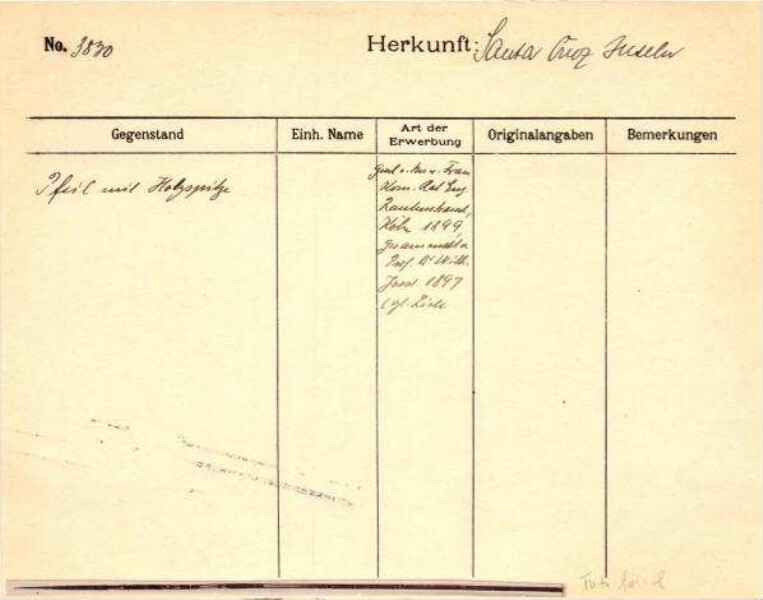 No. 3830
Herkunft: Santa Cruz Inseln
Gegenstand
Einh. Name
Art der Erwerbung
Originalangaben
Bemerkungen
Pfeil mit Holzspitze
Frau
Kom. Rat Eug
Rautenstrauch,
Köln 1899,
Prof. Dr Wilh.
Joest 1897